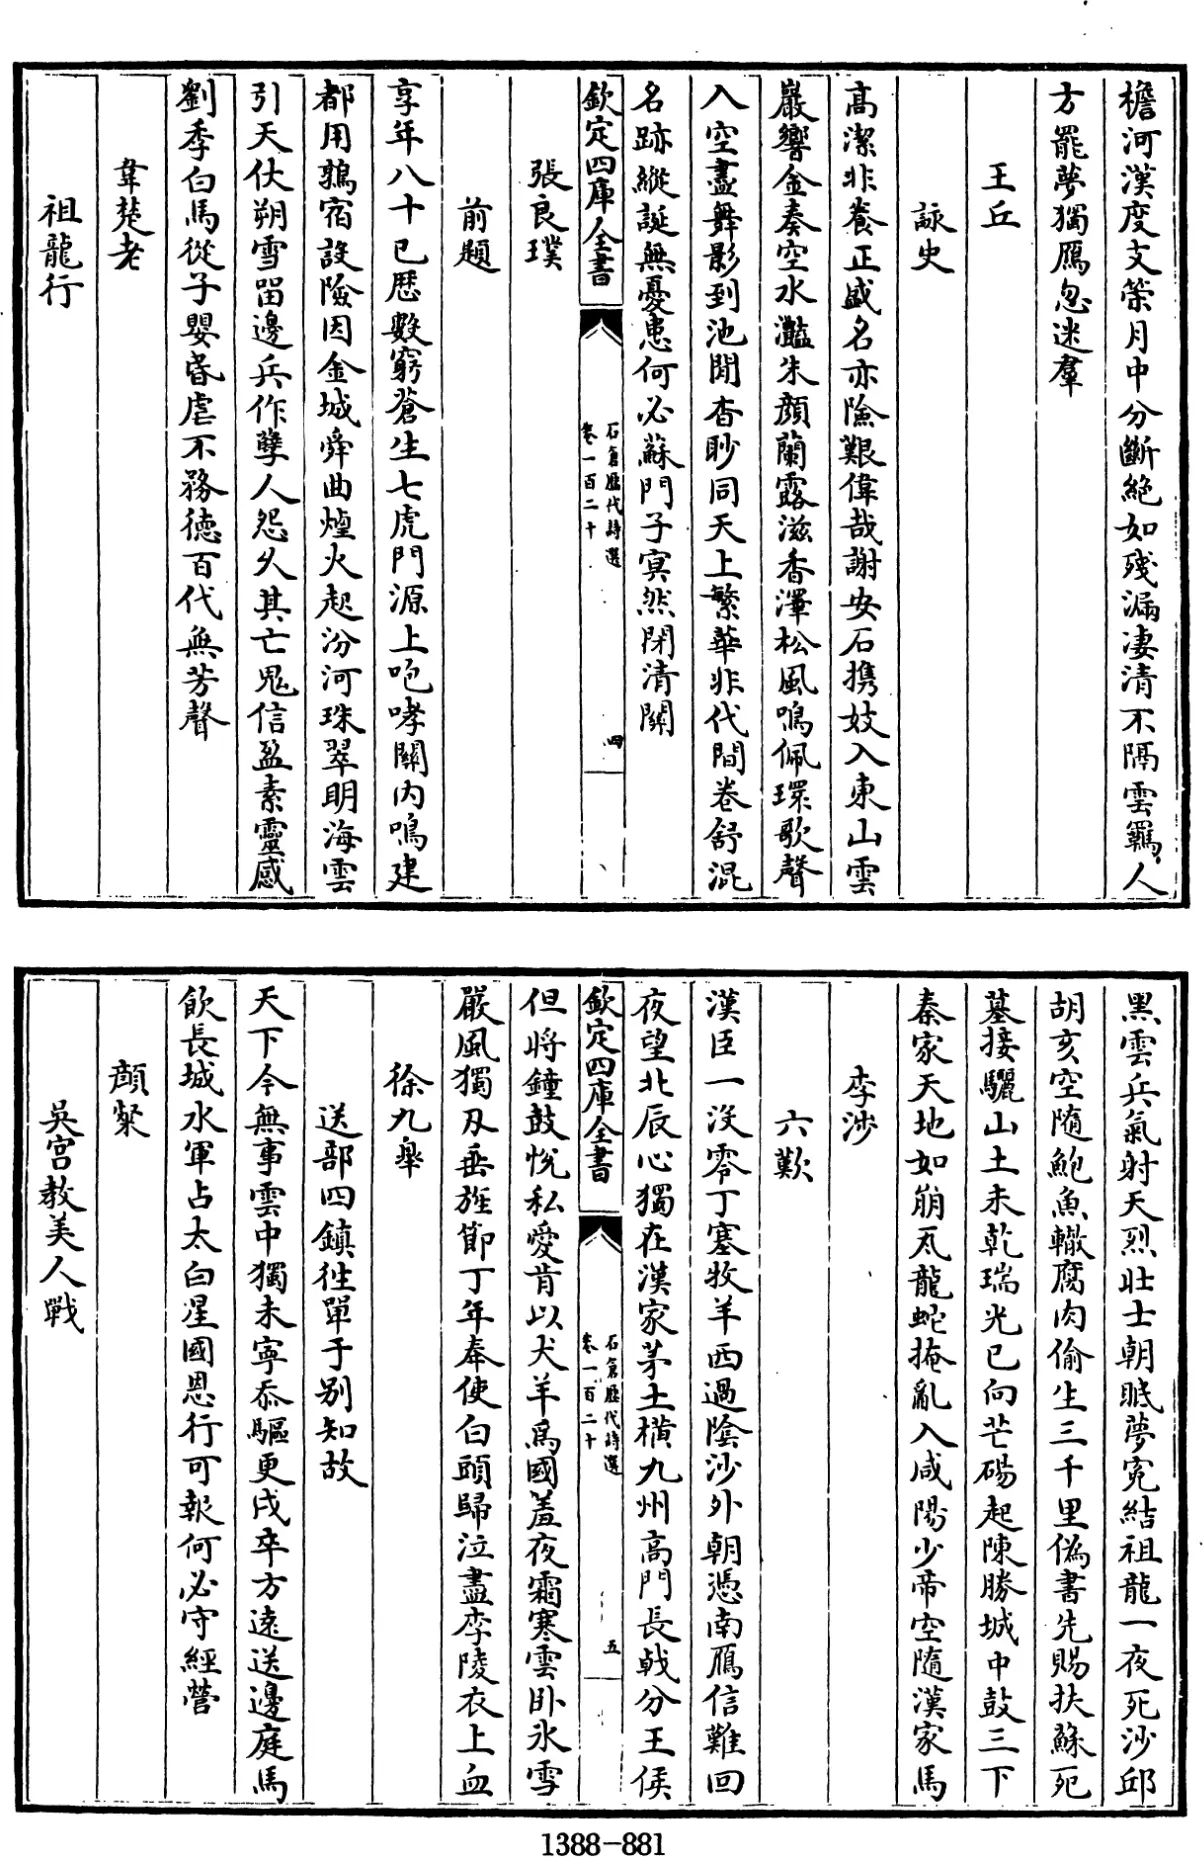 檐河漢度支䇿月中分斷絶如殘漏凄清不隔雲羈人
方罷夢獨鴈忽迷羣
王丘
詠史
髙潔非養正盛名亦險艱偉哉謝安石携妓入東山雲
巖響金奏空水灩朱顔蘭露滋香澤松風鳴佩環歌聲
入空盡舞影到池閒杳眇同天上繁華非代間卷舒混
名跡縱誕無憂患何必蘇門子㝠然閉清關
欽定四庫全書
石倉歷代詩選
卷一百二十
四
張良璞
前題
享年八十已歴數窮蒼生七虎門源上咆哮關内鳴建
都用鶉宿設險因金城舜曲煙火起汾河珠翠明海雲
引天仗朔雪留邊兵作孽人怨久其亡鬼信盈素靈感
劉季白馬從子嬰昏虐不務徳百代無芳聲
韋楚老
祖龍行
黒雲兵氣射天烈壯士朝眠夢寃結祖龍一夜死沙邱
胡亥空隨鮑魚轍腐肉偷生三千里偽書先賜扶蘇死
墓接驪山土未乾瑞光已向芒碭起陳勝城中鼓三下
秦家天地如崩瓦龍蛇掩亂入咸陽少帝空隨漢家馬
李涉
六歎
漢臣一沒零丁塞牧羊西過陰沙外朝憑南鴈信難回
夜望北辰心獨在漢家茅土横九州高門長戟分王侯
欽定四庫全書
石倉歷代詩選
卷一百二十
五
但將鐘鼓恱私愛肯以犬羊爲國羞夜霜寒雲卧氷雪
嚴風獨刄垂旌節丁年奉使白頭歸泣盡李陵衣上血
徐九臯
送部四鎮徃單于别知故
天下今無事雲中獨未寧忝驅更戍卒方逺送邊庭馬
飲長城水軍占太白星國恩行可報何必守經營
顔粲
吳宮教美人戰
1388-881